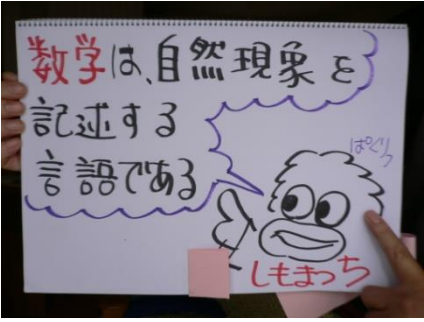 数学は、自然現象を
記述する
言語である
ぱくりっ
しもまっち